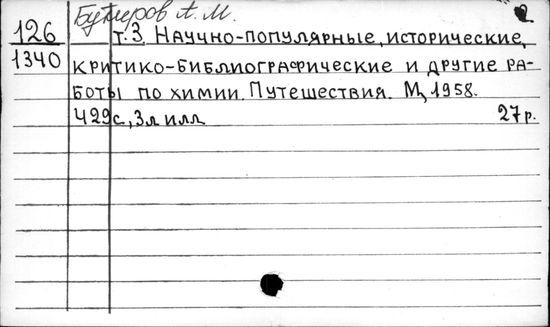 Бутлеров А. М. 2
126 т. 3. Научно-популярные, исторические,
1340 критико-библиографические и другие ра-
боты по химии. Путешествия. М, 1958.
429с, 3л илл 27 р.